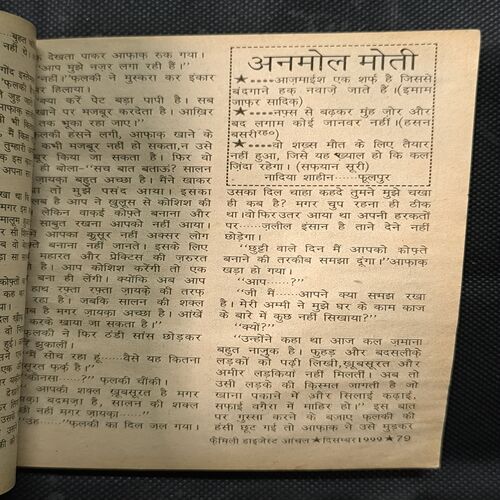 देखता पाकर आफ़ाक़ रुक गया।
"आप मुझे नज़र लगा रही हैं।"
नहीं।" फ़लकी ने मुस्करा कर इंकार
हिलाया।
क्या करें पेट बड़ा पापी है। सब
खाने पर मजबूर करदेता है। आख़िर
तक भूका रहा जाए।"
फ़लकी हंसने लगी, आफ़ाक़ खाने के
कभी मजबूर नहीं हो सकता, न उसे
मजबूर किया जा सकता है। फिर वो
ही बोला-"सच बात बताऊं? सालन
ज़ायक़ा बहुत अच्छा है। मैंने खाकर
तो मुझे पसंद आया। इसका
मतलब है आप ने ख़ुलूस से कोशिश की
लेकिन वाकई कोफ़्ते बनाना और
साबुत रखना आपको नहीं आया।
आपका कुसूर नहीं अक्सर लोग
कोफ़्ते बनाना नहीं जानते। इसके लिए
महारत और प्रेक्टिस की ज़रुरत
है। आप कोशिश करेंगी तो एक
बना ही लेंगी। क्योंकि अब आप
हाथ रफ़्ता रफ़्ता ज़ायक़े की तरफ़
रहा है। जबकि सालन की शक्ल
है मगर ज़ायक़ा अच्छा है। आंखें
करके खाया जा सकता है।"
फ़लकी ने फिर ठंडी सांस छोड़कर
झुकाली।
मैं सोच रहा हूं.....वैसे यह कितना
ख़ूबसूरत फ़र्क़ है।"
कौनसा.....?" फ़लकी चौंकी।
आपकी शक्ल ख़ूबसूरत है मगर
बदमज़ा है, सालन की शक्ल
नहीं मगर ज़ायक़ा......"
"उंह....." फ़लकी का दिल जल गया।
अनमोल मोती
★----आज़माईश एक शर्फ़ है जिससे
बंदगाने हक़ नवाज़े जाते हैं। (इमाम
जाफ़र सादिक़)
★----नफ़्स से बढ़कर मुंह ज़ोर और
बद लगाम कोई जानवर नहीं। (हसन
बसरीरह०)
★----वो शख़्स मौत के लिए तैयार
नहीं हुआ, जिसे यह ख़्याल हो कि कल
ज़िंदा रहेगा। (सफ़यान सूरी)
नादिया शाहीन-----फूलपुर
उसका दिल चाहा कहदे तुमने मुझे चखा
ही कब है? मगर चुप रहना ही ठीक
था। वो फिर उतर आया था अपनी हरकतों
पर.....ज़लील इंसान है ताने देने नहीं
छोड़ेगा।
"छुट्टी वाले दिन मैं आपको कोफ़्ते
बनाने की तरकीब समझा दूंगा।" आफ़ाक़
खड़ा हो गया।
"आप.....?"
"जी मैं.....आपने क्या समझ रखा
है। मेरी अम्मी ने मुझे घर के काम काज
के बारे में कुछ नहीं सिखाया?"
"क्यों?"
"उन्होंने कहा था आज कल ज़माना
बहुत नाज़ुक है। फूहड़ और बदसलीक़े
लड़कों को पढ़ी लिखी, ख़ूबसूरत और
अमीर लड़कियां नहीं मिलतीं। अब तो
उसी लड़के की क़िस्मत जागती है जो
खाना पकाने में और सिलाई कढ़ाई,
सफ़ाई वग़ैरा में माहिर हो।" इस बात
पर गुस्सा करने के बजाए फ़लकी की
हंसी छूट गई तो आफ़ाक़ ने उसे मुड़कर
फ़ैमिली डाइजेस्ट आंचल ★ दिसम्बर 1999 ★ 79